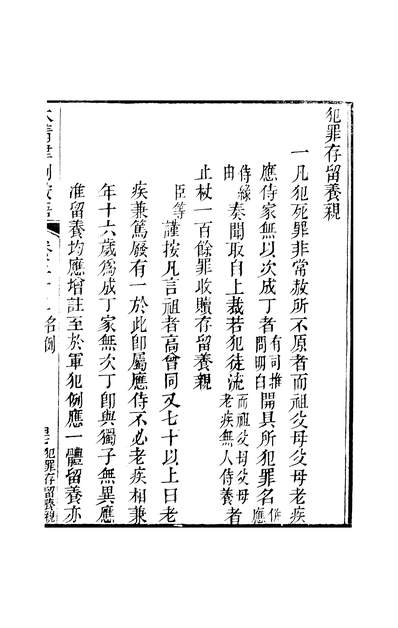 犯罪存留養親
一凡犯死罪非常赦所不原者而祖父母父母老疾
應侍家無以次成丁者有司推問明白開具所犯罪名併應
侍緣由奏聞取自上裁若犯徒流而祖父母父母老疾無人侍養者
止杖一百餘罪收贖存留養親
臣等謹按凡言祖者高曾同又七十以上曰老
疾兼篤廢有一於此即屬應侍不必老疾相兼
年十六歲為成丁家無次丁即與獨子無異應
准留養均應增註至於軍犯例應一體留養亦
大清律例
名例
犯罪存留養親